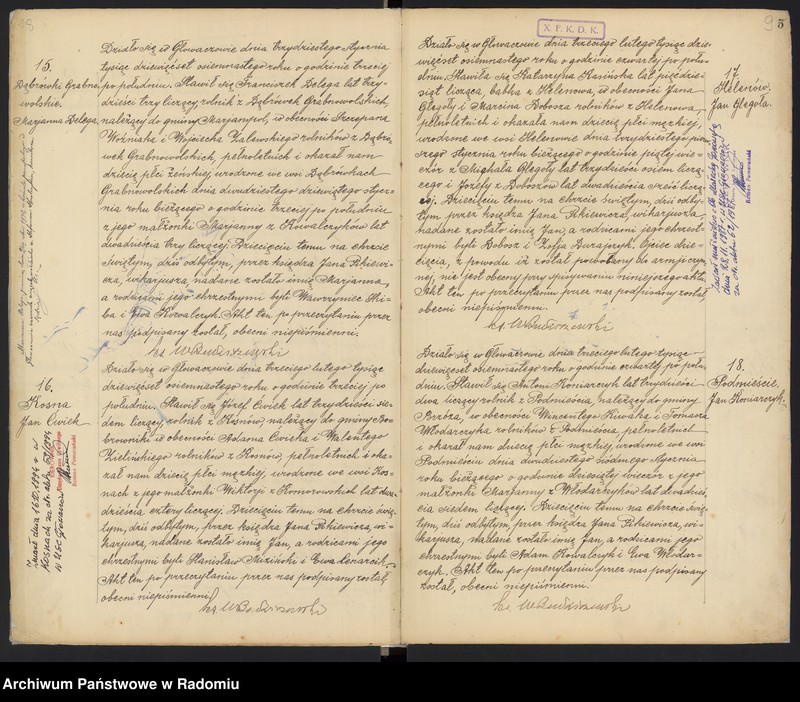 15.
Dąbrówki Grabno-
wolskie.
Marjanna Delega.
Działo się w Głowaczowie dnia trzydziestego stycznia
tysiąc dziewięćset osiemnastego roku o godzinie trzeciej
po południu. Stawił się Franciszek Delega lat trzy-
dzieści trzy liczący rolnik z Dąbrówek Grabnowolskich,
należący do gminy Marjampol, w obecności Szczepana
Woźniaka i Wojciecha Zalewskiego rolników z Dąbró-
wek Grabnowolskich, pełnoletnich i okazał nam
dziecię płci żeńskiej urodzone we wsi Dąbrówkach
Grabnowolskich dnia dwudziestego dziewiątego stycz-
nia roku bieżącego o godzinie trzeciej po południu
z jego małżonki Marjanny z Kowalczyków lat
dwadzieścia trzy liczącej. Dziecięciu temu na chrzcie
świętym, dziś odbytym, przez księdza Jana
wikarjusza nadane zostało imię Marjanna,
a rodzicami jego chrzestnymi byli Wawrzyniec
i Kowalczyk. Akt ten po przeczytaniu przez
nas podpisany został, obecni niepiśmienni.
16.
Kosna
Jan Cwiek
Działo się w Głowaczowie dnia trzeciego lutego tysiąc
dziewięćset osiemnastego roku o godzinie trzeciej po
południu. Stawił się Józef Cwiek lat trzydzieści sie-
dem liczący, rolnik z Kosnów, należący do gminy Bo-
browniki w obecności Adama Cwieka i Walentego
Zielińskiego rolników z Kosnów, pełnoletnich i oka-
zał nam dziecię płci męzkiej, urodzone we wsi Kos-
nach z jego małżonki Wiktorji z Komorowskich lat dwa-
dzieścia cztery liczącej. Dziecięciu temu na chrzcie świę-
tym, dziś odbytym, przez księdza Jana wi-
karjusza, nadane zostało imię Jan, a rodzicami jego
chrzestnymi byli Stanisław i Ewa Lenarcik.
Akt ten po przeczytaniu przez nas podpisany został,
obecni niepiśmienni.
X. F. K. D. K.
5
17.
Helenów.
Jan Głegoła.
Działo się w Głowaczowie dnia trzeciego lutego tysiąc dzie-
więćset osiemnastego roku o godzinie czwartej po połu-
dniu. Stawiła się Katarzyna Kasińska lat pięćdzie-
siąt licząca, babka z Helenowa, w obecności Jana
Głegoły i Marcina Bobosza rolników z Helenowa,
pełnoletnich i okazała nam dziecię płci męzkiej,
urodzone we wsi Helenowie dnia trzydziestego pier-
szego stycznia roku bieżącego o godzinie piątej wie-
czór z Michała Głegoły lat trzydzieści osiem liczą-
cego i Józefy z Boboszów lat dwadzieścia sześć liczą-
cej. Dziecięciu temu na chrzcie świętym, dziś odby-
tym, przez księdza Jana wikarjusza,
nadane zostało imię Jan, a rodzicami jego chrzest-
nymi byli Bobosz i Zofja Burajczyk. Ojciec dzie-
cięcia, z powodu iż został powołany do armji czyn-
nej, nie jest obecny przy spisywaniu niniejszego aktu.
Akt ten po przeczytaniu przez nas podpisany został,
obecni niepiśmienni.
18.
Podmieście.
Jan Koniarczyk.
Działo się w Głowaczowie dnia trzeciego lutego tysiąc
dziewięćset osiemnastego roku o godzinie czwartej po połu-
dniu. Stawił się Antoni Koniarczyk lat trzydzieści
dwa liczący rolnik z Podmieścia, należący do gminy
Brzóza, w obecności Wincentego i Tomasza
Włodarczyka rolników z Podmieścia, pełnoletnich
i okazał nam dziecię płci męzkiej, urodzone we wsi
Podmieściu dnia dwudziestego siódmego stycznia
roku bieżącego o godzinie dziesiątej wieczór z jego
małżonki Marjanny z Włodarczyków lat dwadzieś-
cia siedem liczącej. Dziecięciu temu na chrzcie świę-
tym, dziś odbytym, przez księdza Jana wi-
karjusza, nadane zostało imię Jan, a rodzicami jego
chrzestnymi byli Adam Kowalczyk i Ewa Włodar-
czyk. Akt ten po przeczytaniu przez nas podpisany
został, obecni niepiśmienni.
Archiwum Państwowe w Radomiu